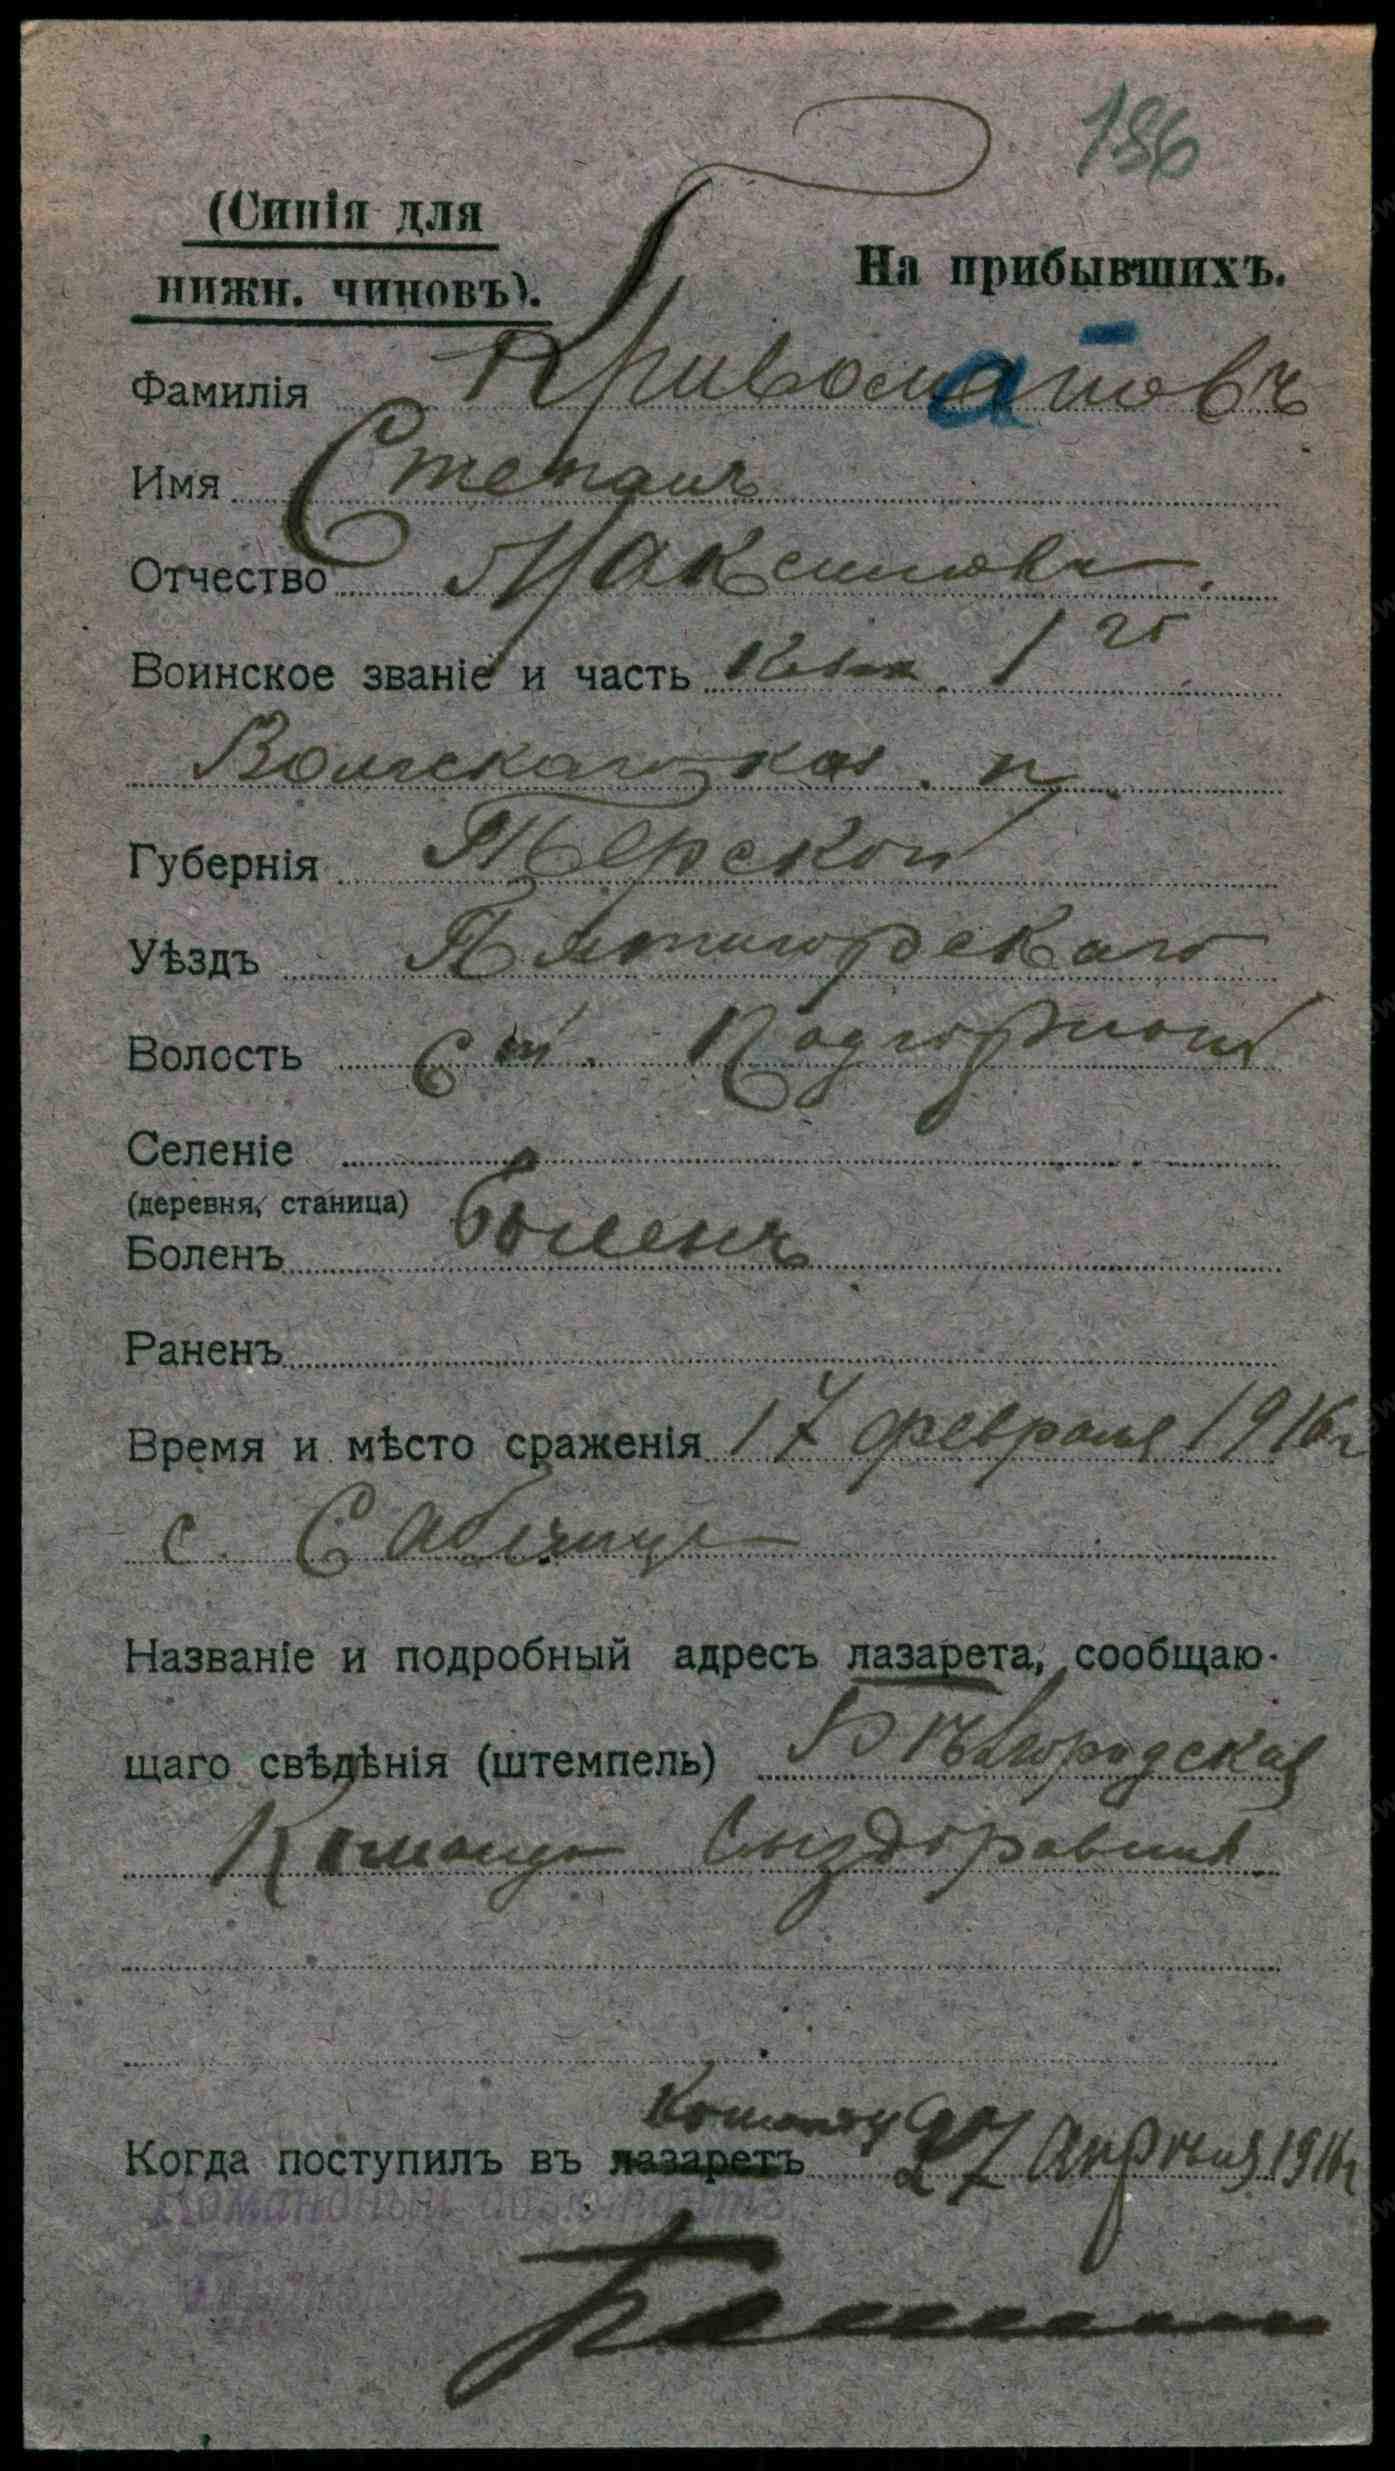 186
(Синія для
нижн. чиновъ).
На прибывшихъ.
Фамилія Кривоматовъ
Имя Степанъ
Отчество Максимовъ.
Воинское званіе и часть 1го
Волжскаго каз. п.
Губернія Терской
Уѣздъ Пятигорскаго
Волость Ст. Подгорной
Селеніе
(деревня, станица)
Боленъ боленъ
Раненъ
Время и мѣсто сраженія 17 февраля 1916 г
с.
Названіе и подробный адресъ лазарета, сообщаю-
щаго свѣдѣнія (штемпель) Бѣлгородская
Команда Выздоравлив.
Команду
Когда поступилъ въ лазаретъ 27 Апрѣля 1916 г